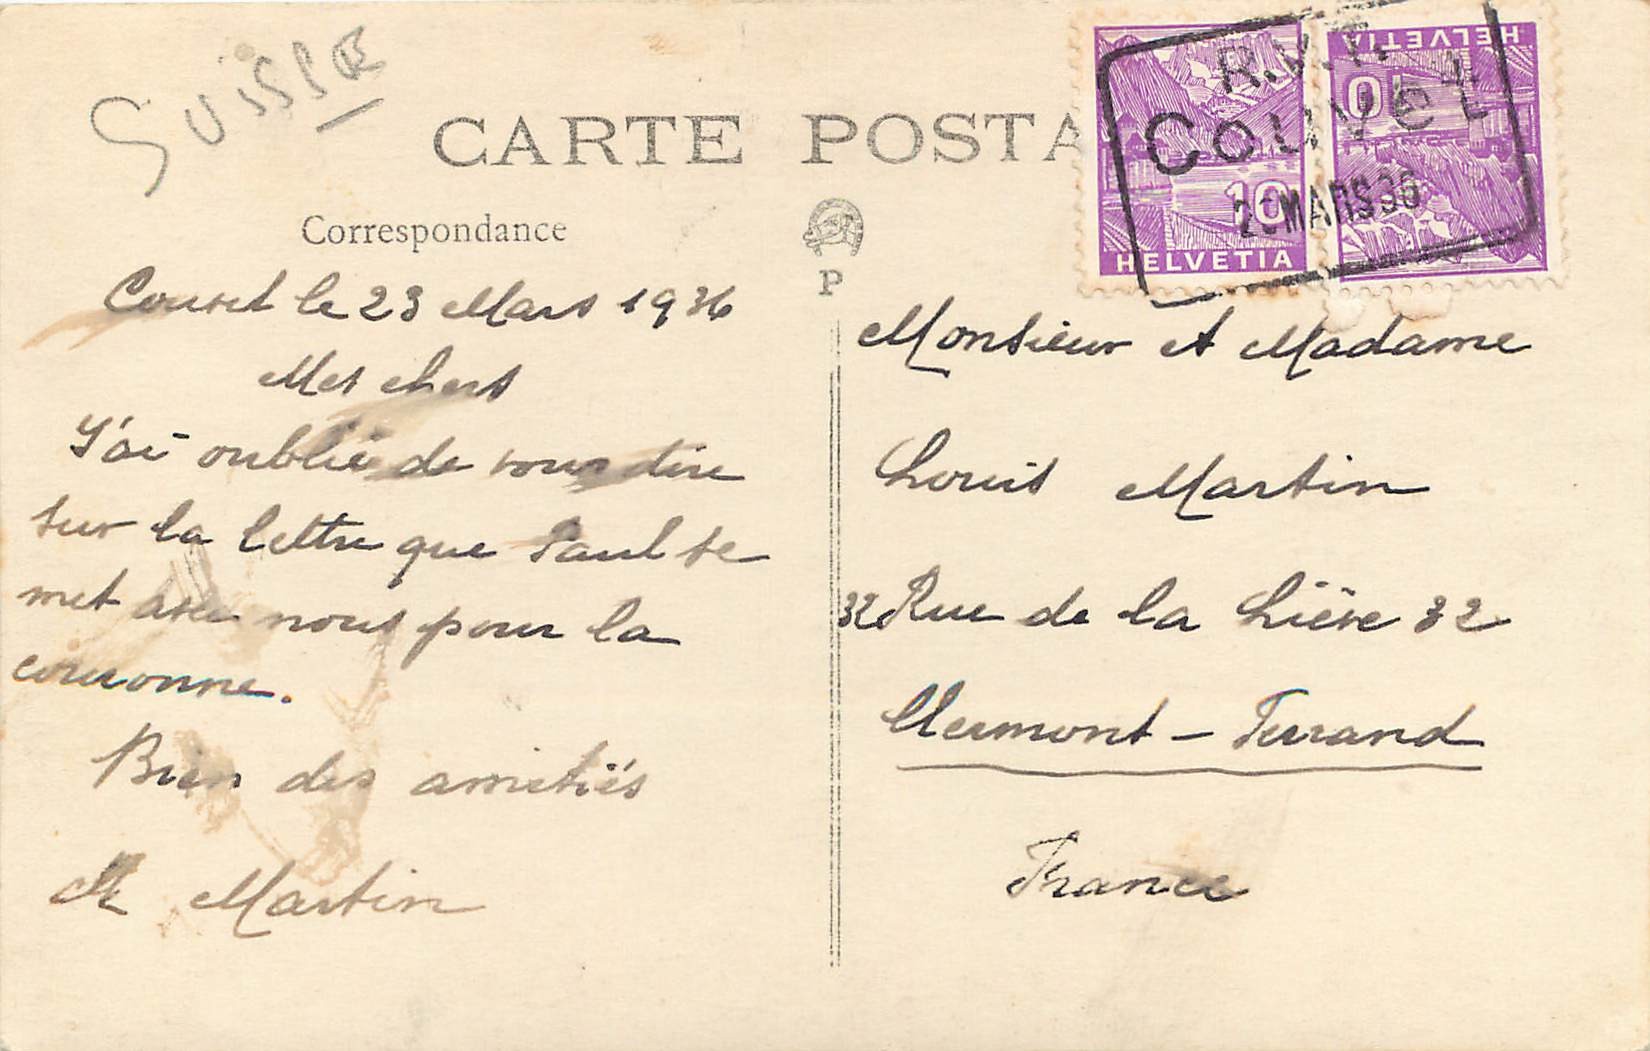 SUISSE
CARTE POSTA
Correspondance
P
Couvet le 23 Mars 1936
Mes chers
J'ai oublié de vous dire
sur la lettre que Paul se
met avec nous pour la
couronne.
Bien des amitiés
Martin
HELVETIA
10
HELVETIA
10
R.V.T.
COUVET
MARS 36
Monsieur et Madame
Louis Martin
32 Rue de la Lière 32
Clermont-Ferrand
France